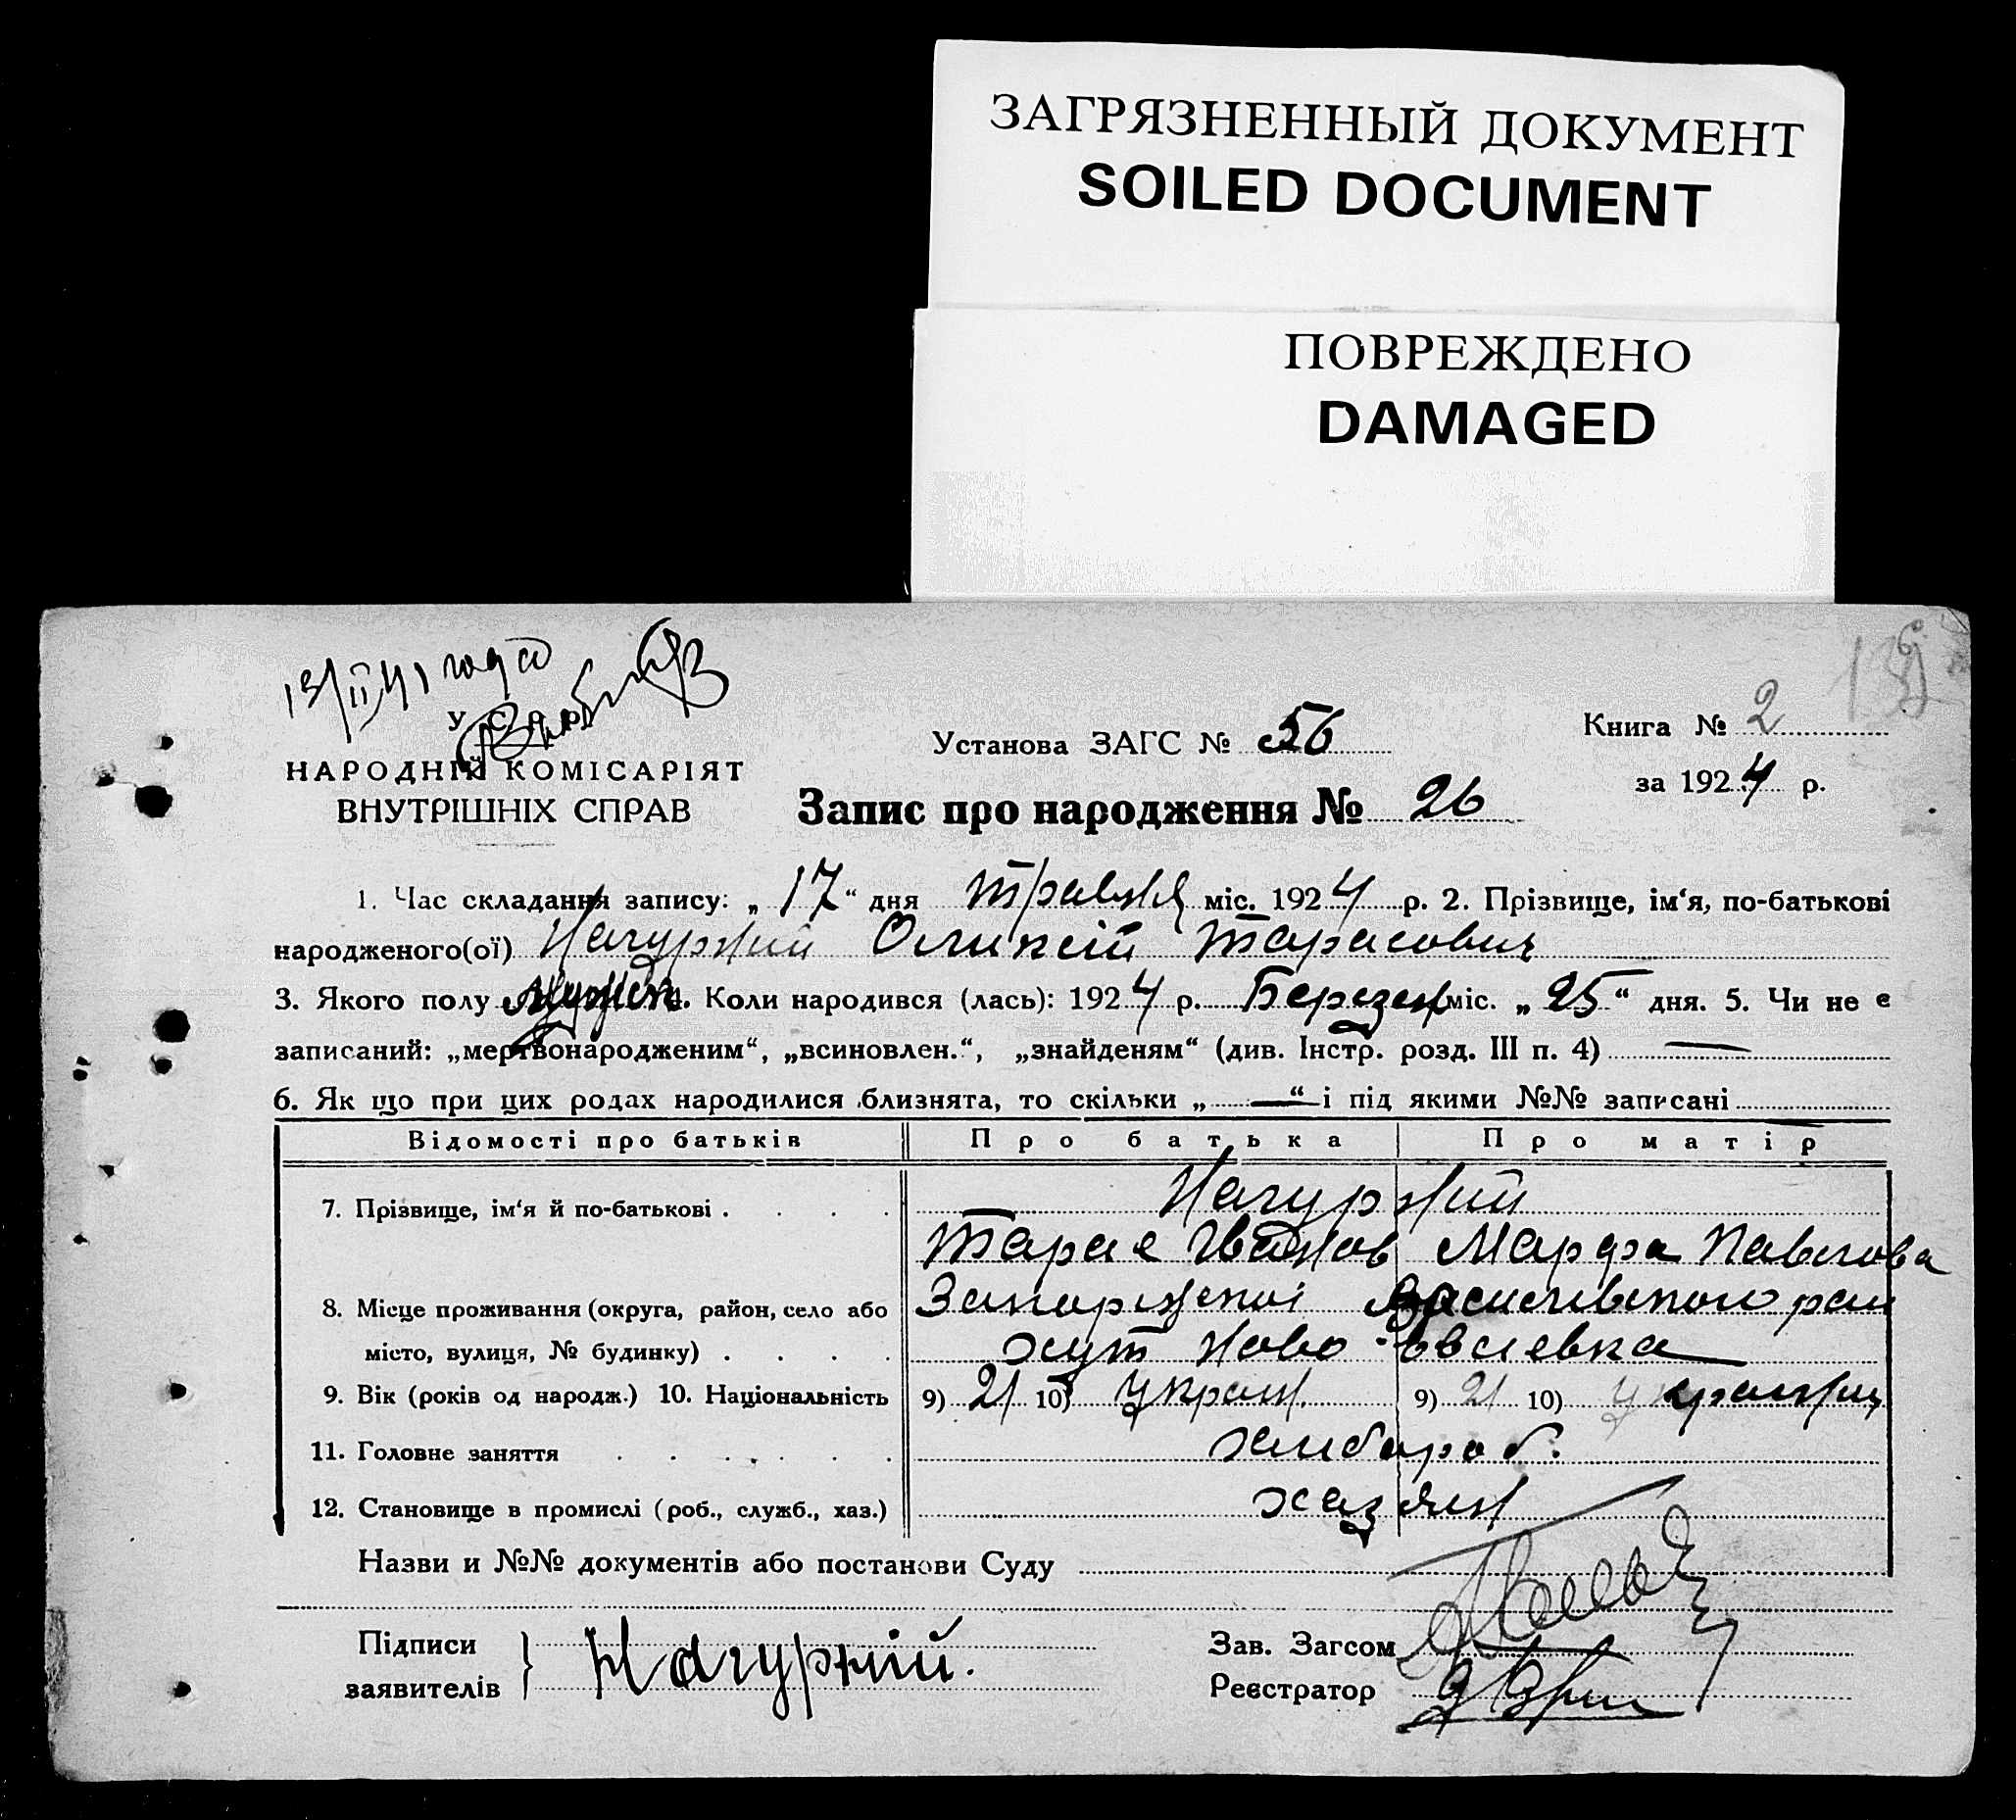 ЗАГРЯЗНЕННЫЙ ДОКУМЕНТ
SOILED DOCUMENT
ПОВРЕЖДЕНО
DAMAGED
13/II 41 года
У. С. Р. Р.
НАРОДНІЙ КОМІСАРІЯТ
ВНУТРІШНІХ СПРАВ
Установа ЗАГС № 56
Книга № 2
за 1924 р.
Запис про народження № 26
1. Час складання запису: „17“ дня травня міс. 1924 р. 2. Прізвище, ім‘я, по-батькові
народженого(ої) Нагурний Оликсій Тарасович
3. Якого полу 4. Коли народився (лась): 1924 р. Березня міс. „25“ дня. 5. Чи не є
записаний: „мертвонародженим“, „всиновлен.“, „знайденям“ (див. Інстр. розд. III п. 4) —
6. Як що при цих родах народилися близнята, то скільки „—“ і під якими №№ записані
Відомості про батьків Про батька Про матір
7. Прізвище, ім‘я й по-батькові . . . . Нагурний
Тарас Іванов Марфа Павлова
8. Місце проживання (округа, район, село або Запоріжскої Василівського рай
місто, вулиця, № будинку) . . . . хут Ново-
9. Вік (років од народж.) 10. Національність 9) 21 10) украін. 9) 21 10) украінц
11. Головне заняття . . . . . . хлибороб.
12. Становище в промислі (роб., служб., хаз.) хазяин
Назви и №№ документів або постанови Суду
Підписи
заявителів } Нагурний.
Зав. Загсом
Реєстратор